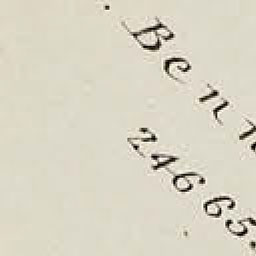 . Benn
24665.